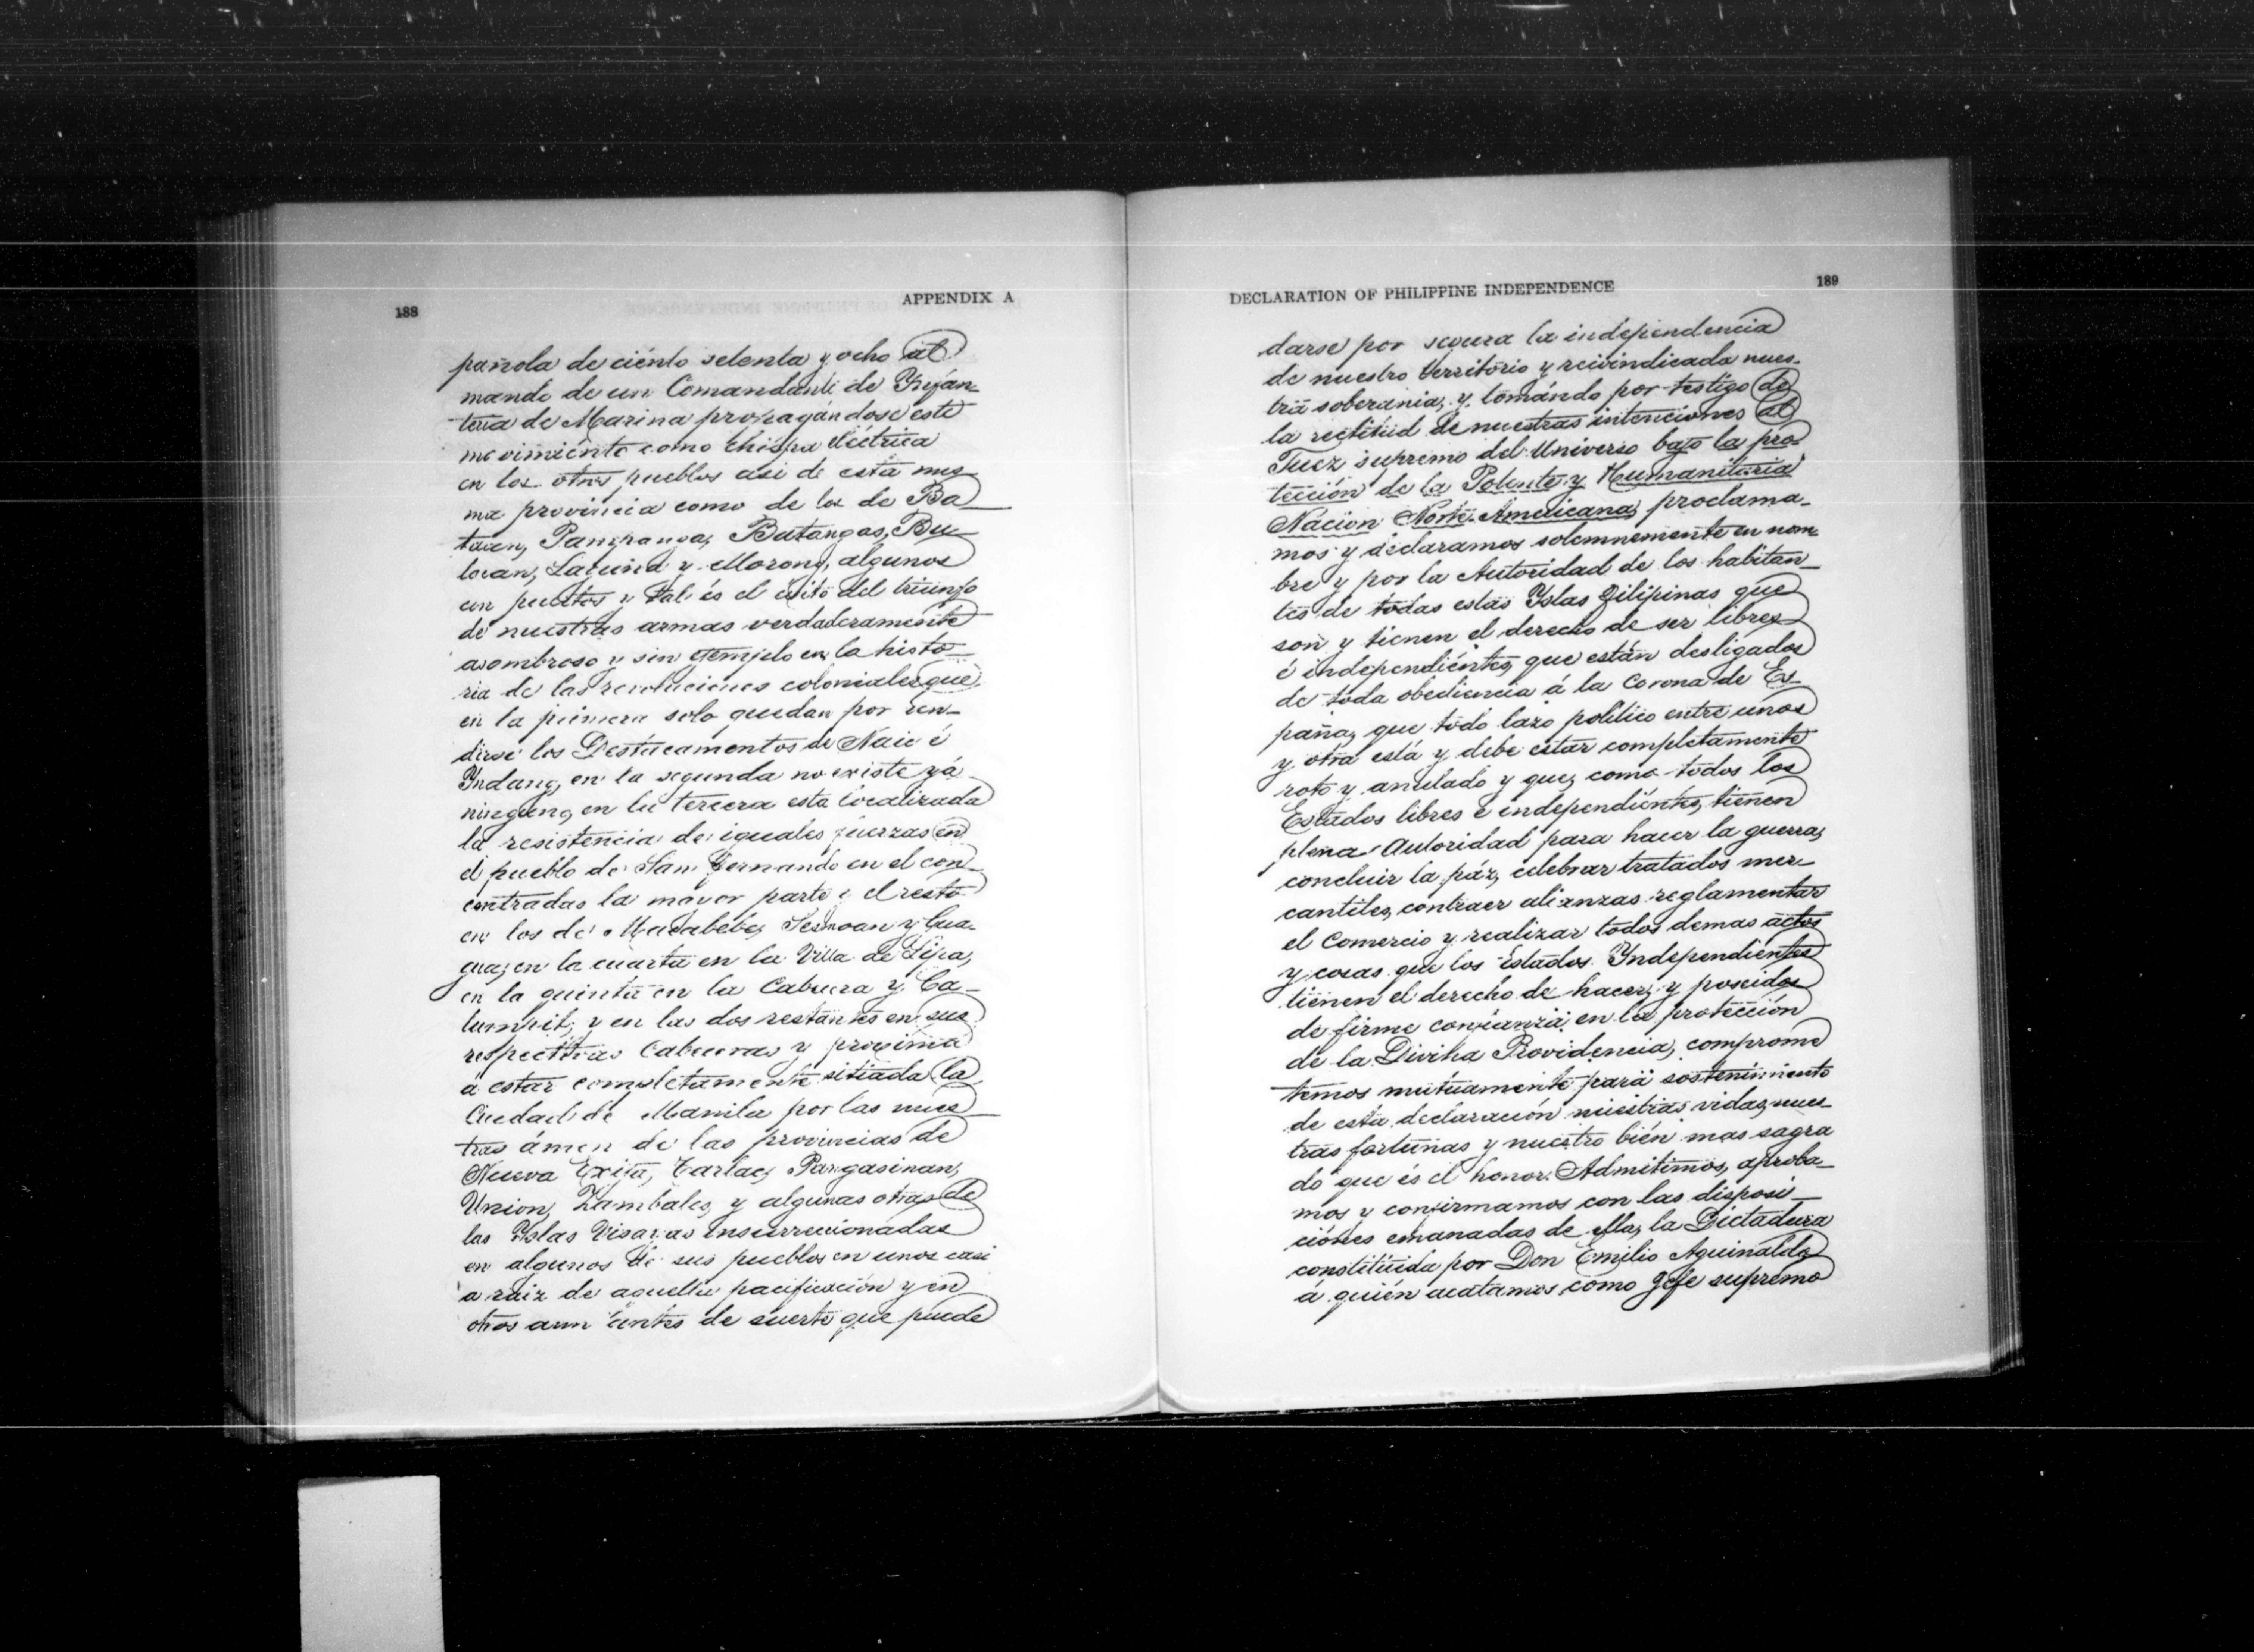 188
APPENDIX A
pañola de ciénto setenta y ocho al
mando de un Comandante de Ynfan-
teria de Marina propagándose este
movimiento como chispa eléctrica
en los otros pueblos asi de esta mis
ma provincia como de los de Ba
taan, Pampanga, Batangas, Bu
lacán, Laguna y Morong, algunos
con puertos y tal és el éxito del triunfo
de nuestras armas verdaderamente
asombroso y sin ejemplo en la histo
ria de las revoluciones coloniales que
en la primera solo quedan por ren-
dirse los Destacamentos de Naic é
Yndang, en la segunda no existe yá
ninguno, en la tercera esta localizada
la resistencia de iguales fuerzas en
el pueblo de San Fernando en el con
centradas la mayor parte y el resto
en los de Macabebe, Sesmoan y Gua-
gua; en la cuarta en la Villa de Lipa,
en la quinta en la Cabecera y Ca-
lumpit; y en las dos restantes en sus
respectivas Cabeceras y proxima
á estar completamente sitiada la
Ciudad de Manila por las nues
tras ámen de las provincias de
Nueva Exija, Tarlac, Pangasinan,
Union, Zambales, y algunas otras de
las Yslas Visayas insurreccionadas
en algunos de sus pueblos en unos casi
a raiz de aquella pacificación y en
otros aun antes de suerte que puede
DECLARATION OF PHILIPPINE INDEPENDENCE
189
darse por segura la independencia
de nuestro territorio y reivindicada nues-
tra soberania, y tomándo por testigo de
la rectitud de nuestras intenciones al
Juez supremo del Universo bajo la pro-
tección de la Potente y Humanitaria
Nacion Norte-Americana, proclama-
mos y declaramos solemnemente en nom
bre y por la Autoridad de los habitan-
tes de todas estas Yslas Filipinas que
son y tienen el derecho de ser libres
é independiéntes, que están desligados
de toda obediencia á la Corona de Es
paña, que todo lazo político entre unos
y otra está y debe estar completamente
roto y anulado y que, como todos los
Estados libres é independiéntes, tienen
plena Autoridad para hacer la guerra,
concluir la páz, celebrar tratados mer-
cantiles, contraer alianzas reglamentar
el Comercio y realizar todos demas actos
y cosas que los Estados Yndependientes
tienen el derecho de hacer; y poseidos
de firme confianza en la protección
de la Divina Providencia, comprome
temos mutuamente para sostenimiento
de esta declaración nuestras vidas, nues-
tras fortunas y nuestro bién mas sagra
do que és el honor. Admitimos, aproba-
mos y confirmamos con las disposi-
ciónes emanadas de ella, la Dictadura
constituida por Don Emilio Aguinaldo
á quién acatamos como Gefe supremo